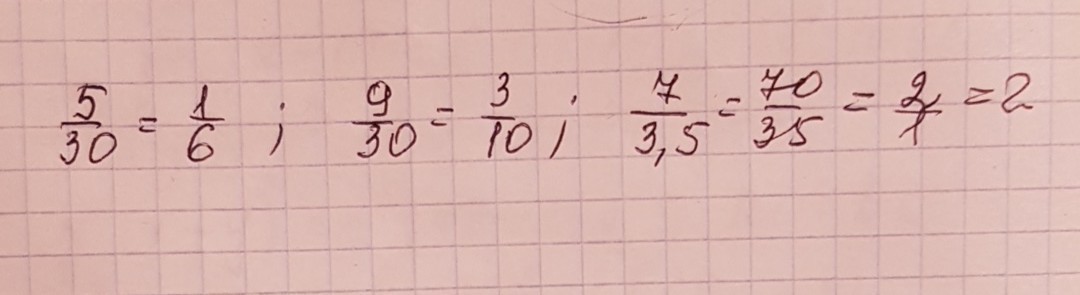 5/30 = 1/6 ; 9/30 = 3/10 ; 7/3,5 = 70/35 = 2/1 = 2